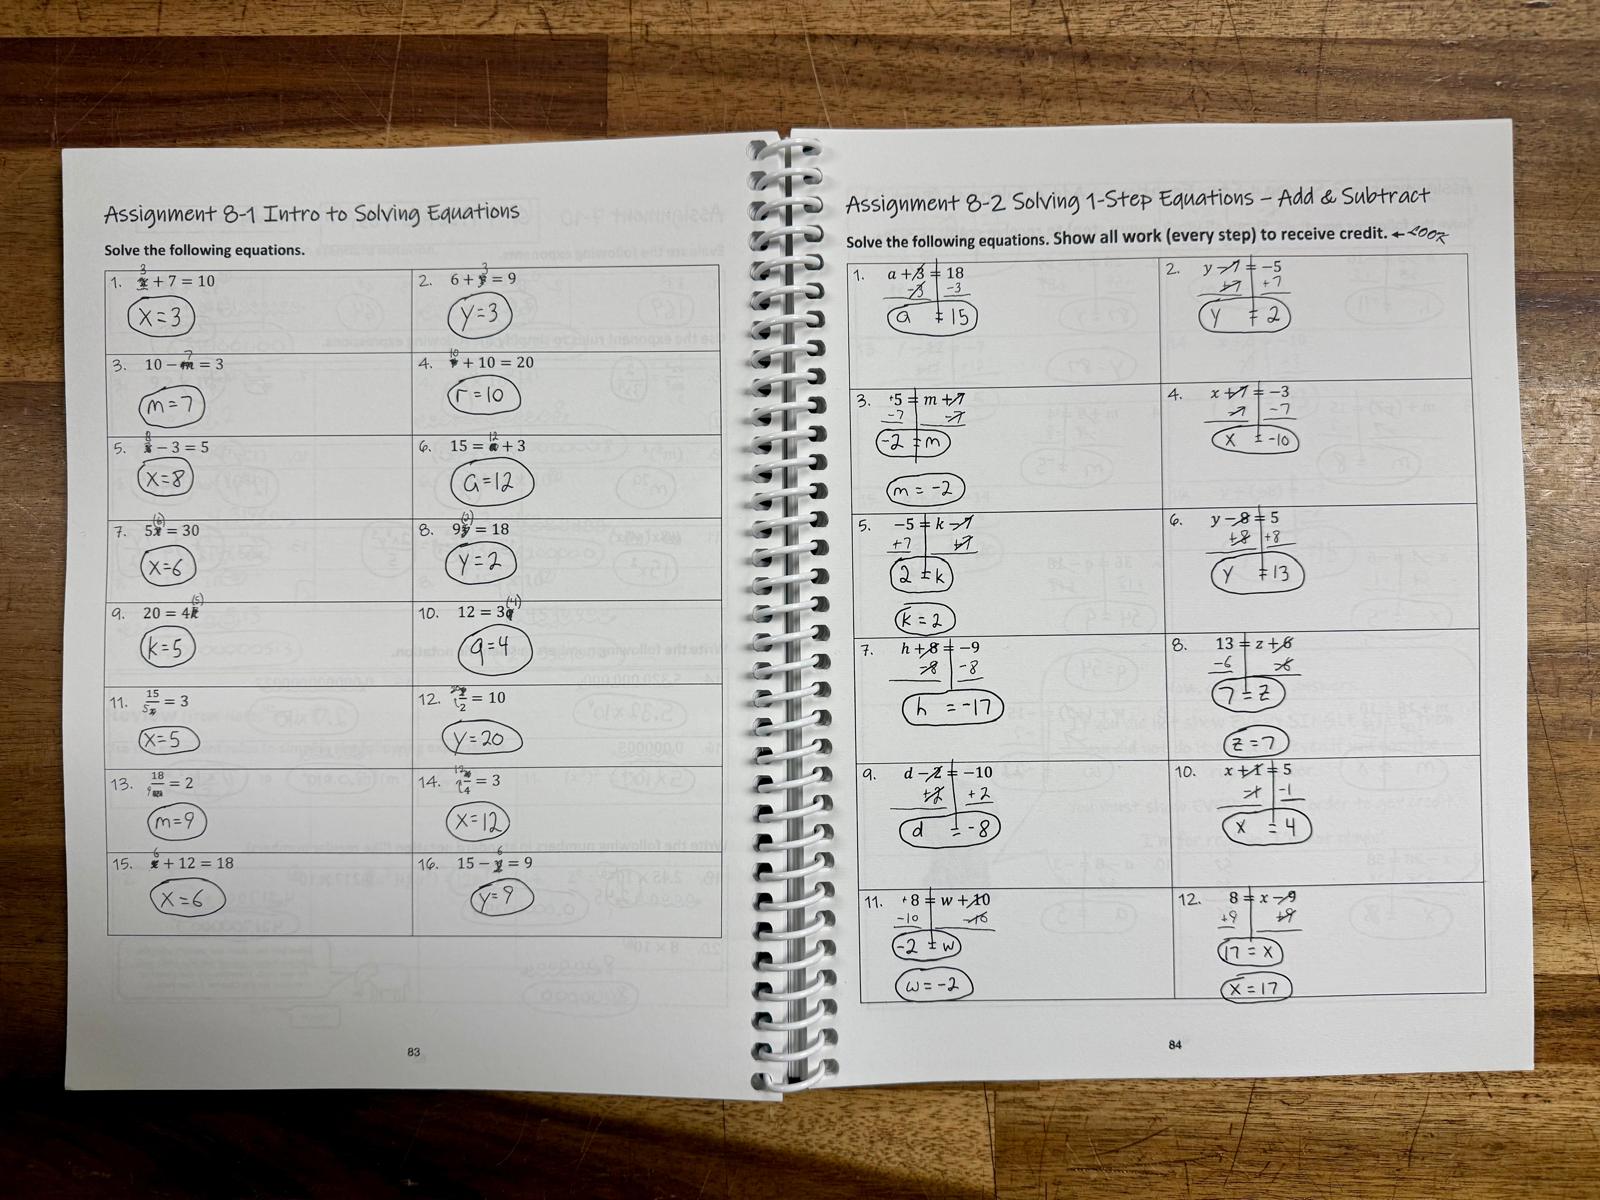 Assignment 8-1 Intro to Solving Equations
Solve the following equations.
1. x + 7 = 10
3
x=3
2. 6 + y = 9
3
y=3
3. 10 − m = 3
7
m=7
4. r + 10 = 20
10
r=10
5. x − 3 = 5
8
x=8
6. 15 = a + 3
12
a=12
7. 5x = 30
(6)
x=6
8. 9y = 18
(2)
y=2
9. 20 = 4k
(5)
k=5
10. 12 = 3q
(4)
q=4
11. 15/x = 3
5
x=5
12. y/2 = 10
20
y=20
13. 18/m = 2
9
m=9
14. x/4 = 3
12
x=12
15. x + 12 = 18
6
x=6
16. 15 − y = 9
6
y=9
83
Assignment 8-2 Solving 1-Step Equations – Add & Subtract
Solve the following equations. Show all work (every step) to receive credit. ← LOOK
1. a + 3 = 18
-3 -3
a = 15
2. y − 7 = −5
+7 +7
y = 2
3. +5 = m + 7
-7 -7
-2 = m
m = -2
4. x + 7 = −3
-7 -7
x = -10
5. −5 = k − 7
+7 +7
2 = k
k = 2
6. y − 8 = 5
+8 +8
y = 13
7. h + 8 = −9
-8 -8
h = -17
8. 13 = z + 6
-6 -6
7 = z
z = 7
9. d − 2 = −10
+2 +2
d = -8
10. x + 1 = 5
-1 -1
x = 4
11. +8 = w + 10
-10 -10
-2 = w
w = -2
12. 8 = x − 9
+9 +9
17 = x
x = 17
84